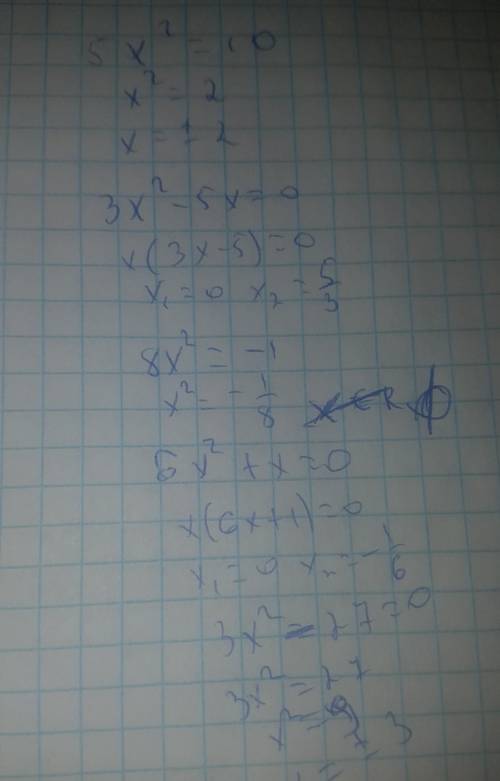 5x² = 10
x² = 2
x = ± 2
3x² - 5x = 0
x(3x-5) = 0
x₁ = 0 x₂ = 5/3
8x² = -1
x² = -1/8
6x² + x = 0
x(6x+1) = 0
x₁ = 0 x₂ = -1/6
3x² - 27 = 0
3x² = 27